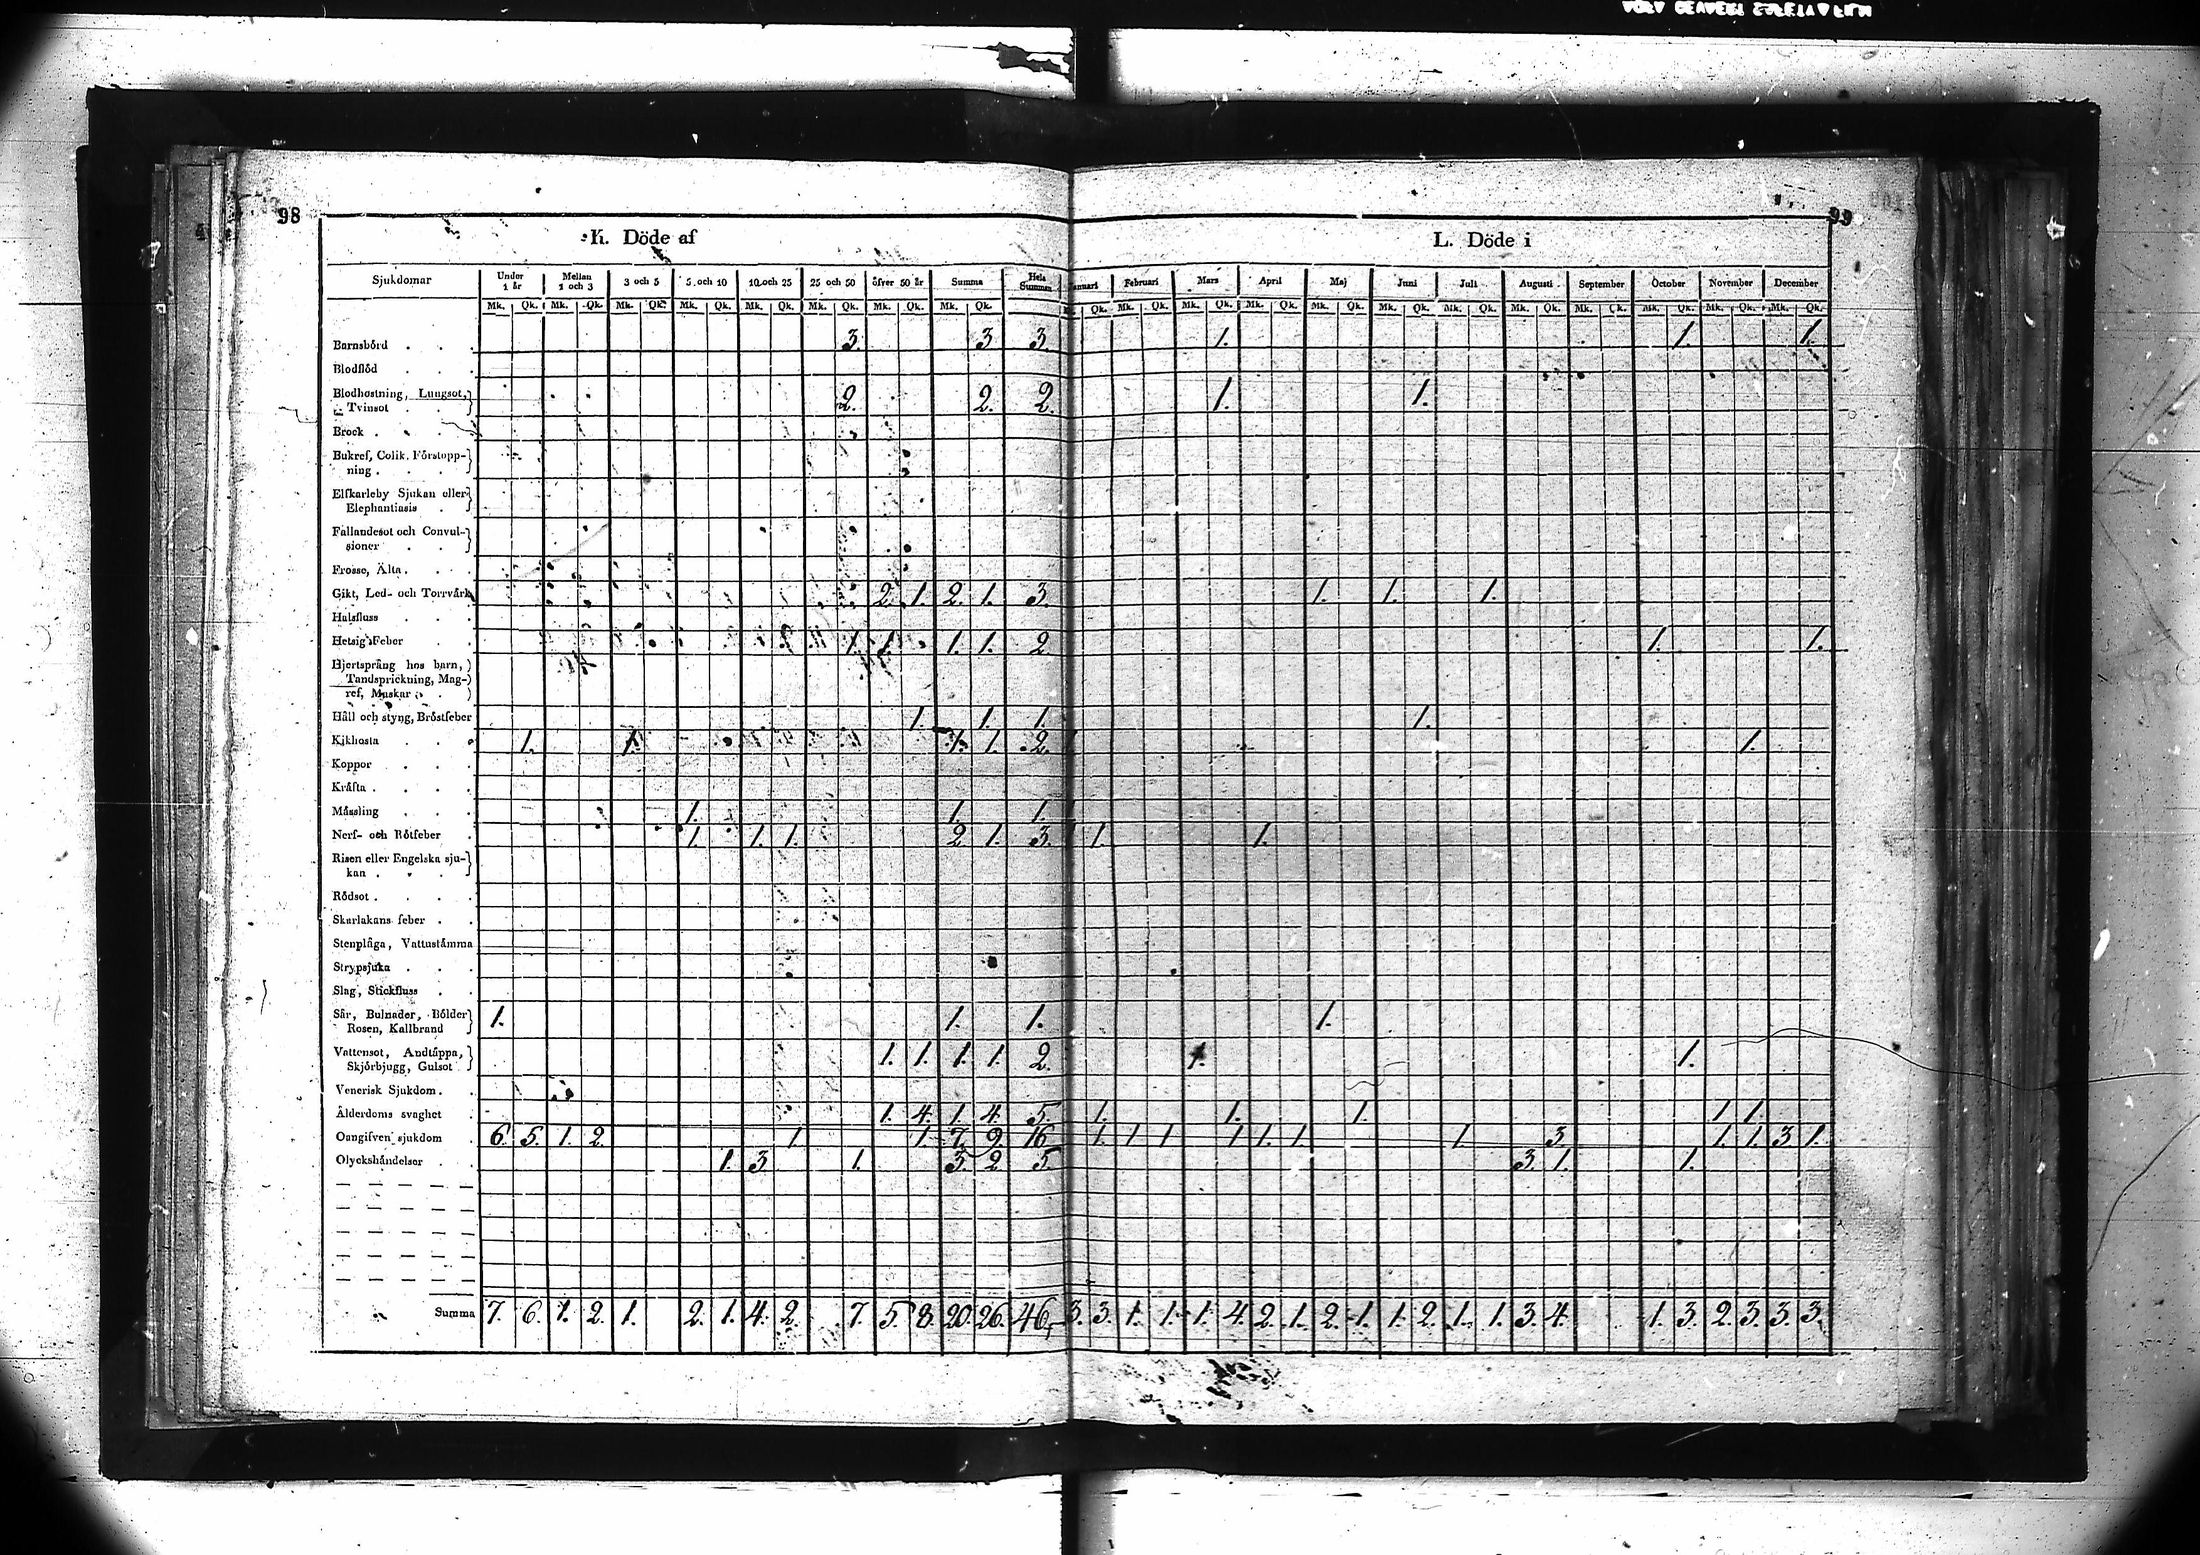 98
99
K. Döde af
L. Döde i
Sjukdomar Under 1 år Mellan 1 och 3 3 och 5 5 och 10 10 och 25 25 och 50 öfver 50 år Summa Hela Summan Februari Mars April Maj Juni Juli Augusti September October November December
Mk. Qk. Mk. Qk. Mk. Qk. Mk. Qk. Mk. Qk. Mk. Qk. Mk. Qk. Mk. Qk. Qk. Mk. Qk. Mk. Qk. Mk. Qk. Mk. Qk. Mk. Qk. Mk. Qk. Mk. Qk. Mk. Qk. Mk. Qk. Mk. Qk. Mk. Qk.
Barnsbörd . . . 3. 3 3. 1. 1. 1.
Blodflöd . . .
Blodhostning, Lungsot,
Tvinsot . . 2. 2. 2. 1. 1.
Brock . . . .
Bukref, Colik, Förstopp-
ning . . .
Elfkarleby Sjukan eller
Elephantiasis .
Fallandesot och Convul-
sioner . .
Frosse, Älta . . .
Gikt, Led- och Torrvärk 2. 1. 2. 1. 3. 1. 1. 1.
Halsfluss . . .
Hetsig Feber . . 1. 1. 1. 1. 2 1. 1.
Hjertsprång hos barn,
Tandsprickning, Mag-
ref, Maskar .
Håll och styng, Bröstfeber 1. 1. 1. 1.
Kikhosta . . . 1. 1. 1. 1. 2. 1 1.
Koppor . . .
Kräfta . . . .
Mässling . . . 1. 1. 1. 1
Nerf- och Rötfeber . 1. 1. 1. 2 1. 3. 1 1. 1.
Risen eller Engelska sju-
kan . . .
Rödsot . . . .
Skarlakans feber . .
Stenplåga, Vattustämma
Strypsjuka . . .
Slag, Stickfluss . .
Sår, Bulnader, Bölder
Rosen, Kallbrand 1. 1. 1. 1.
Vattensot, Andtäppa,
Skjörbjugg, Gulsot 1. 1. 1. 1. 2. 1. 1.
Venerisk Sjukdom . .
Ålderdoms svaghet . 1. 4. 1. 4. 5. 1. 1. 1. 1. 1.
Oangifven sjukdom . 6. 5. 1. 2. 1. 1 7. 9. 16 1. 1 1 1 1. 1 1. 3. 1. 1. 3 1.
Olyckshändelser . . 1. 3 1. 3. 2 5. 3. 1. 1.
Summa 7. 6. 1. 2. 1. 2. 1. 4. 2. 7. 5. 8. 20. 26. 46. 3. 3. 1. 1. 1. 4. 2. 1. 2. 1. 1. 2. 1. 1. 3. 4. 1. 3. 2. 3. 3. 3.